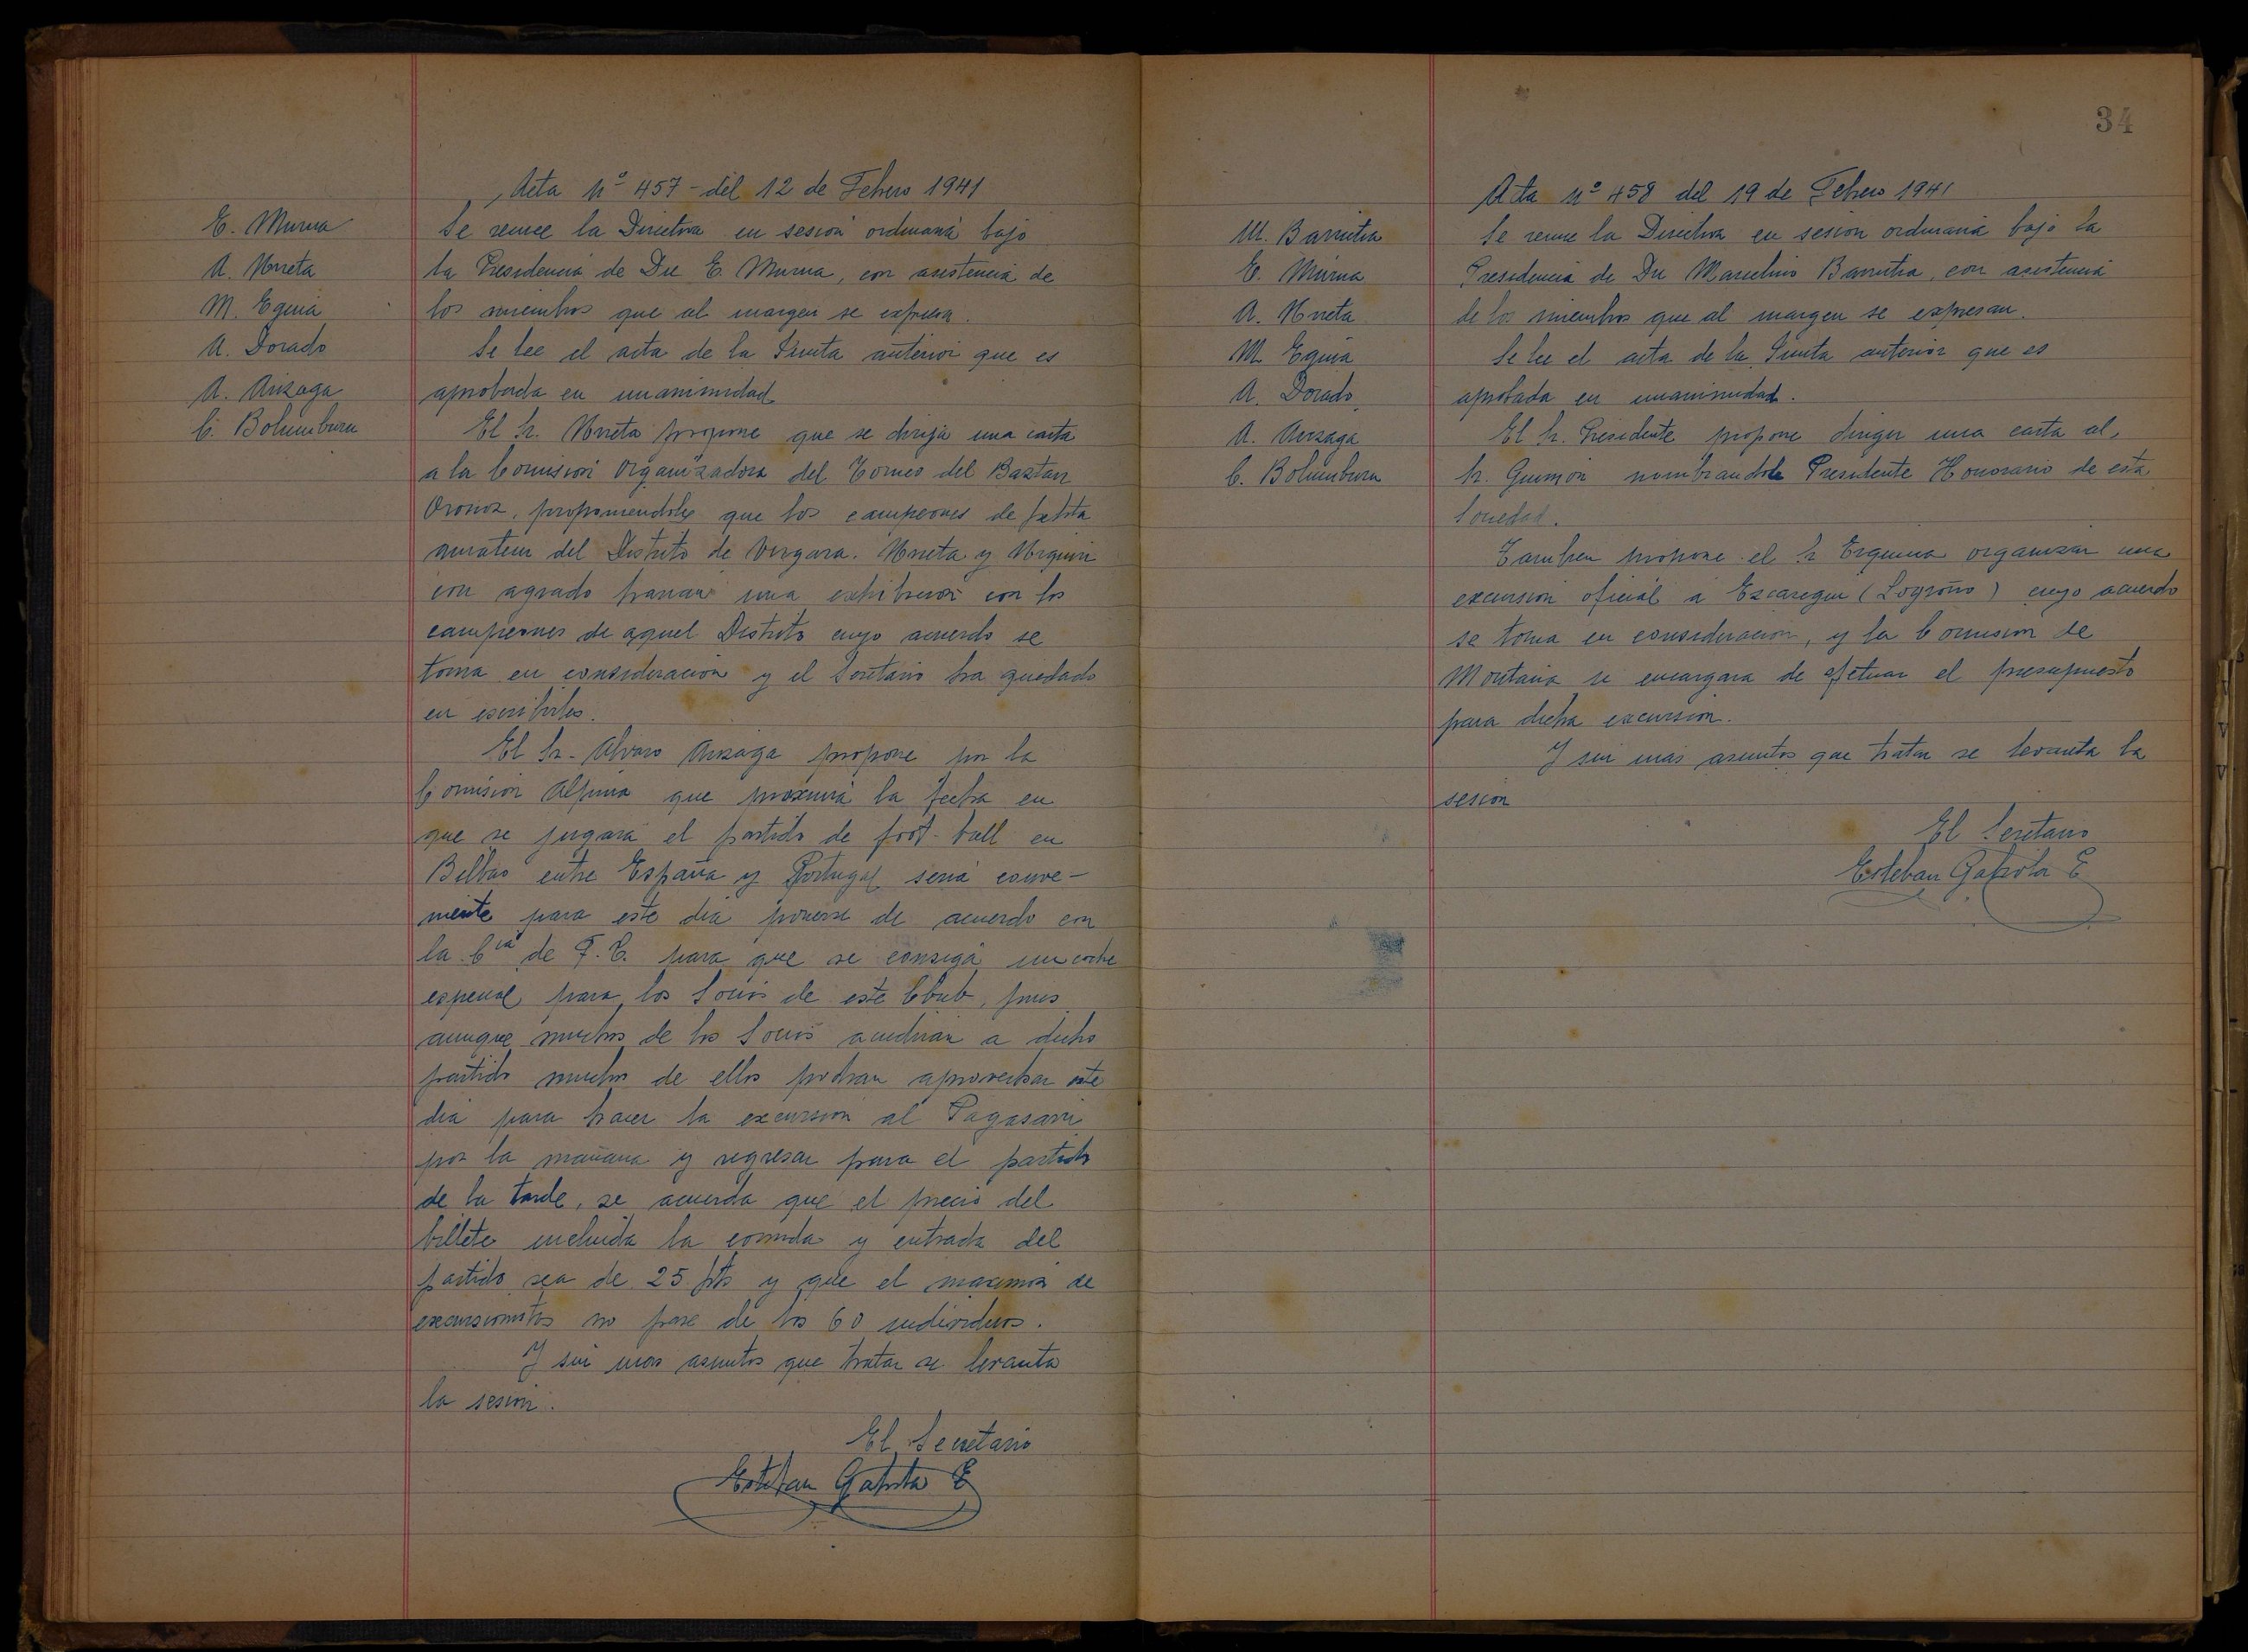 Acta nº 457 - del 12 de Febrero 1941
E. Murua
A. Urreta
M. Eguia
A. Dorado
A. Arizaga
C. Bolumburu
Se reune la Directiva en sesión ordinaria bajo
la Presidencia de Dn E. Murua, con asistencia de
los miembros que al margen se expresa.
Se lee el acta de la Junta anterior que es
aprobada en unanimidad
El Sr. Urreta propone que se dirija una carta
a la Comisión Organizadora del Torneo del Baztan
proponiendoles que los campeones de pelota
amateur del Distrito de Vergara. Urreta y
con agrado harian una exhibicion con los
campeones de aquel Distrito cuyo acuerdo se
toma en consideracion y el Secretario ha quedado
en escribirles.
El Sr. Alvaro Arizaga propone por la
Comision Alpina que proxima la fecha en
que se jugara el partido de foot-ball en
Bilbao entre España y Portugal seria conve-
niente para este dia ponerse de acuerdo con
la Cia de F.C. para que se consiga un coche
especial para los Socios de este Club, pues
aunque muchos de los Socios acudiran a dicho
partido muchos de ellos podran aprovechar este
dia para hacer la excursion al Pagasarri
por la mañana y regresar para el partido
de la tarde, se acuerda que el precio del
billete incluida la comida y entrada del
partido sea de 25 pts y que el maximo de
excursionistas no pase de los 60 individuos.
Y sin mas asuntos que tratar se levanta
la sesion.
El Secretario
Esteban Gabiola E
34
Acta nº 458 del 19 de Febrero 1941
M. Barrutia
E. Murua
A. Urreta
M. Eguia
A. Dorado
A. Arizaga
C. Bolumburu
Se reune la Directiva en sesion ordinaria bajo la
Presidencia de Dn Marcelino Barrutia, con asistencia
de los miembros que al margen se expresan.
Se lee el acta de la Junta anterior que es
aprobada en unanimidad.
El Sr. Presidente propone dirigir una carta al
Sr. Guimon nombrandole Presidente Honorario de esta
Sociedad.
Tambien propone el Sr organizar una
excursion oficial a Ezcaregui (Logroño) cuyo acuerdo
se toma en consideracion, y la Comision de
Montaña se encargara de efetuar el presupuesto
para dicha excursion.
Y sin mas asuntos que tratar se levanta la
sesion
El Secretario
Esteban Gabiola E